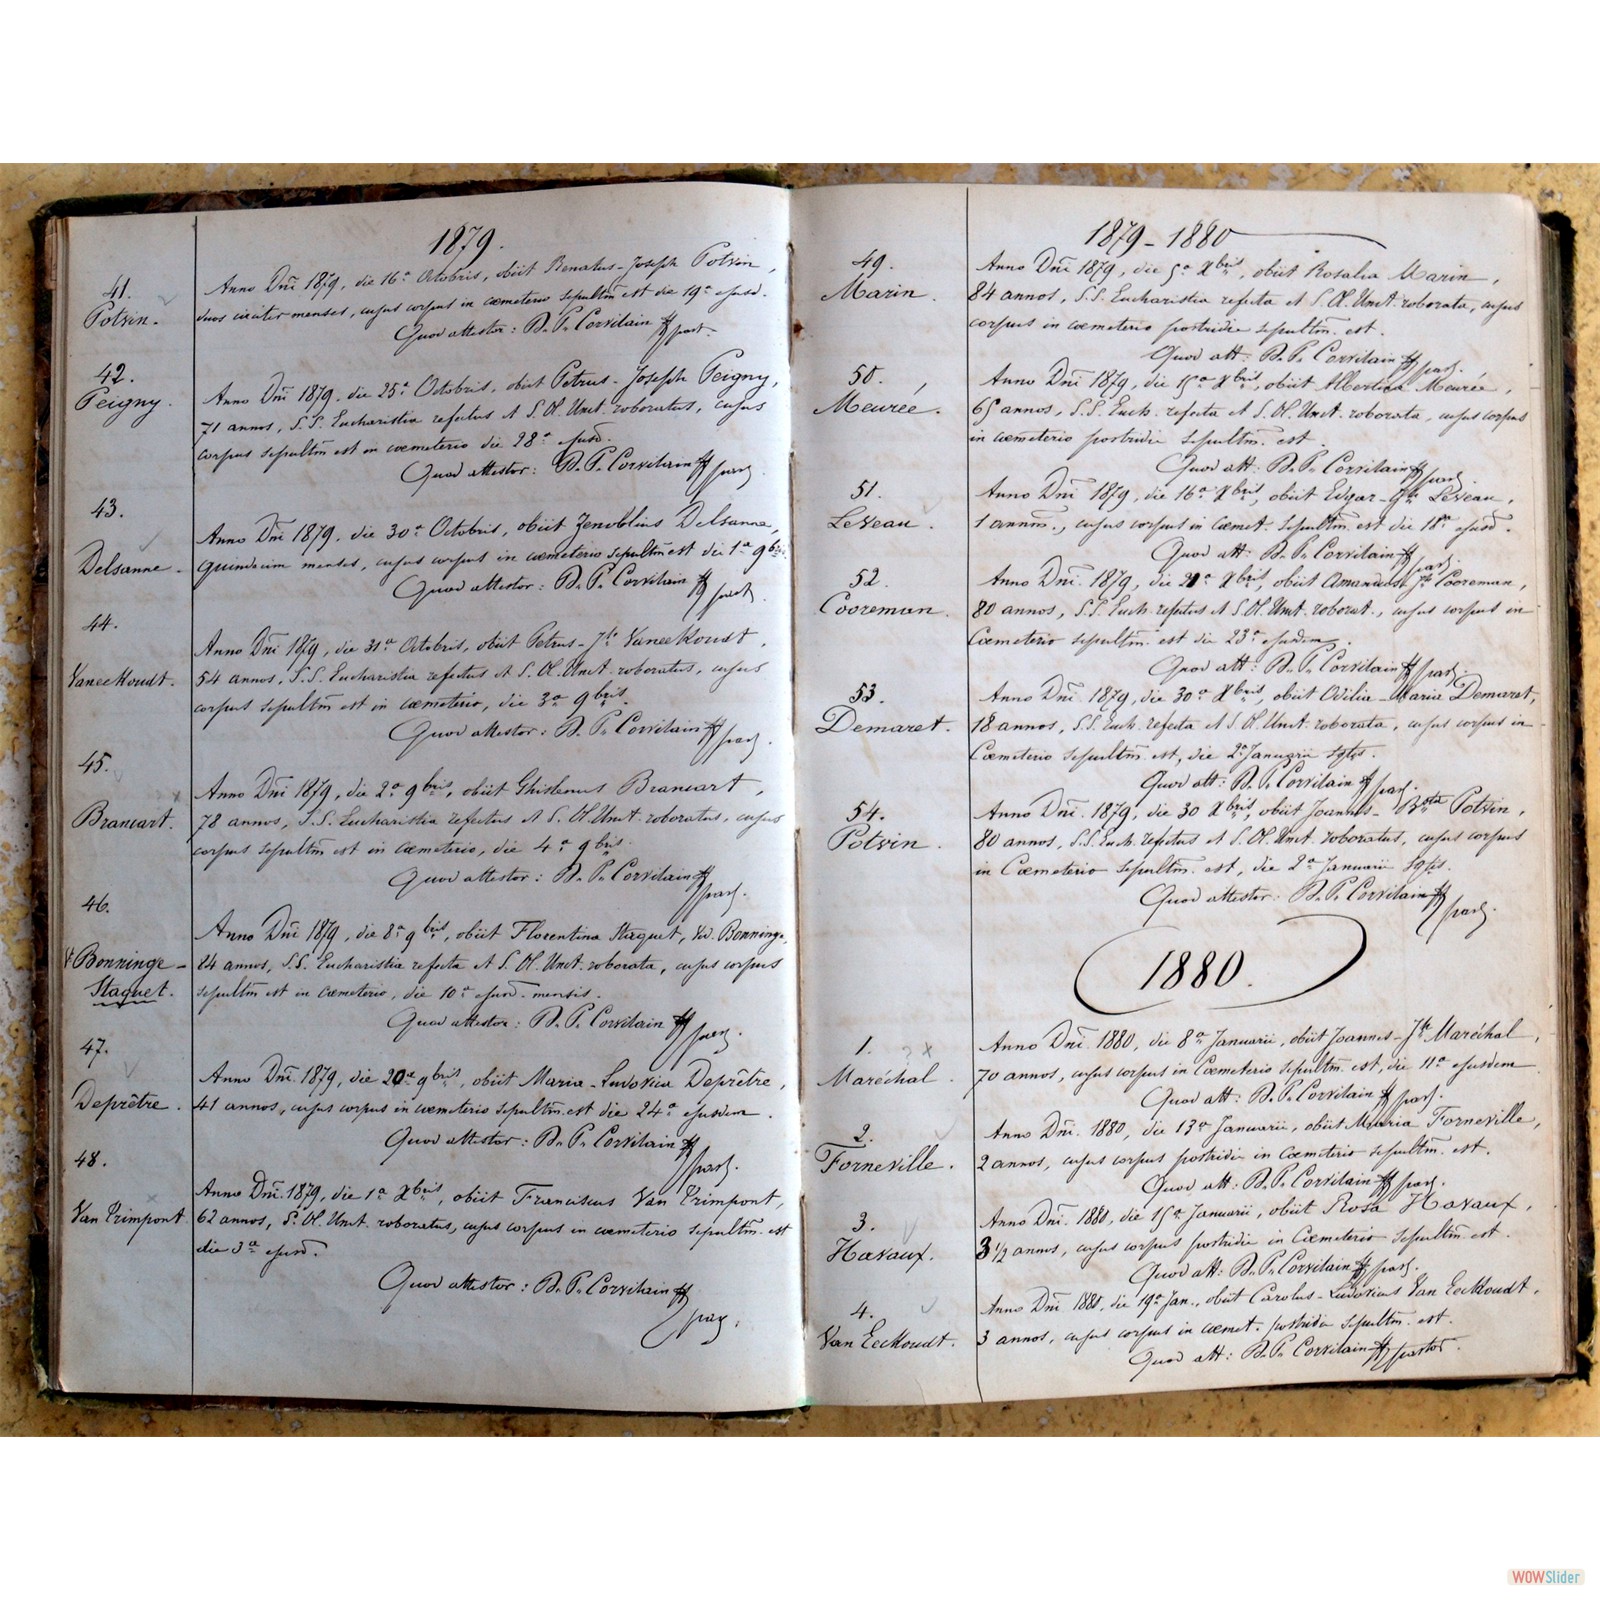 1879.
41.
Potvin.
Anno Dni 1879, die 16a Octobris, obiit Renatus-Joseph Potvin,
duos circiter menses, cujus corpus in cœmeterio sepultm est die 19a ejusd.
Quod attestor: D. P. Corvilain past.
42.
Peigny.
Anno Dni 1879, die 25a Octobris, obiit Petrus-Joseph Peigny,
71 annos, S.S. Eucharistia refectus et S. Ol. Unct. roboratus, cujus
corpus sepultm est in cœmeterio die 28a ejusd.
Quod attestor: D. P. Corvilain past.
43.
Delsanne.
Anno Dni 1879, die 30a Octobris, obiit Zenoblius Delsanne,
quindecim menses, cujus corpus in cœmeterio sepultm est die 1a 9bris
Quod attestor: D. P. Corvilain past.
44.
Vaneckoudt.
Anno Dni 1879, die 31a Octobris, obiit Petrus-Jh Vaneekoudt,
54 annos, S.S. Eucharistia refectus et S. Ol. Unct. roboratus, cujus
corpus sepultm est in cœmeterio, die 3a 9bris.
Quod attestor: D. P. Corvilain past.
45.
Brancart.
Anno Dni 1879, die 2a 9bris, obiit Ghislenus Brancart,
78 annos, S.S. Eucharistia refectus et S. Ol. Unct. roboratus, cujus
corpus sepultm est in cœmeterio, die 4a 9bris.
Quod attestor: D. P. Corvilain past.
46.
Bonninge-
Staquet.
Anno Dni 1879, die 8a 9bris, obiit Florentina Staquet, Vid. Bonninge,
84 annos, S.S. Eucharistia refecta et S. Ol. Unct. roborata, cujus corpus
sepultm est in cœmeterio, die 10a ejusd. mensis.
Quod attestor: D. P. Corvilain past.
47.
Deprêtre.
Anno Dni 1879, die 20a 9bris, obiit Maria-Ludovica Deprêtre,
41 annos, cujus corpus in cœmeterio sepultm est die 24a ejusdem.
Quod attestor: D. P. Corvilain past.
48.
Van Primpont
Anno Dni 1879, die 1a Xbris, obiit Franciscus Van Primpont,
62 annos, S. Ol. Unct. roboratus, cujus corpus in cœmeterio sepultm est
die 3a ejusd.
Quod attestor: D. P. Corvilain past.
1879-1880
49.
Marin.
Anno Dni 1879, die 5a Xbris, obiit Rosalia Marin,
84 annos, S.S. Eucharistia refecta et S. Ol. Unct. roborata, cujus
corpus in cœmeterio postridie sepultm est.
Quod att: D. P. Corvilain past.
50.
Meurée.
Anno Dni 1879, die 15a Xbris, obiit Albertina Meurée,
65 annos, S.S. Euch. refecta et S. Ol. Unct. roborata, cujus corpus
in cœmeterio postridie sepultm est.
Quod att: D. P. Corvilain past.
51.
Leveau.
Anno Dni 1879, die 16a Xbris, obiit Edgar-Gh Leveau,
1 annm., cujus corpus in cœmet. sepultm est die 18a ejusd.
Quod att: D. P. Corvilain past.
52.
Cooreman.
Anno Dni 1879, die 21a Xbris, obiit Amandus Jh Cooreman,
80 annos, S.S. Euch. refectus et S. Ol. Unct. roborat., cujus corpus in
Cœmeterio sepultm est die 23a ejusdem.
Quod att: D. P. Corvilain past.
53.
Demaret.
Anno Dni 1879, die 30a Xbris, obiit Odilia-Maria Demaret,
18 annos, S.S. Euch. refecta et S. Ol. Unct. roborata, cujus corpus in
Cœmeterio sepultm est, die 2a Januarii sqtis.
Quod att: D. P. Corvilain past.
54.
Potvin.
Anno Dni 1879, die 30 Xbris, obiit Joannes-Bpta Potvin,
80 annos, S.S. Euch. refectus et S. Ol. Unct. roboratus, cujus corpus
in Cœmeterio sepultm est, die 2a Januarii sqtis.
Quod attestor: D. P. Corvilain past.
1880.
1.
Maréchal.
Anno Dni 1880, die 8a Januarii, obiit Joannes-Jh Maréchal,
70 annos, cujus corpus in Cœmeterio sepultm est, die 11a ejusdem.
Quod att: D. P. Corvilain past.
2.
Forneville.
Anno Dni 1880, die 13a Januarii, obiit Maria Forneville,
2 annos, cujus corpus postridie in Cœmeterio sepultm est.
Quod att: D. P. Corvilain past.
3.
Havaux.
Anno Dni 1880, die 15a Januarii, obiit Rosa Havaux,
3 1/2 annos, cujus corpus postridie in Cœmeterio sepultm est.
Quod att: D. P. Corvilain past.
4.
Van Eeckoudt.
Anno Dni 1880, die 19a Jan., obiit Carolus-Ludovicus Van Eeckoudt,
3 annos, cujus corpus in cœmet. postridie sepultm est.
Quod att: D. P. Corvilain pastor.
WOWSlider